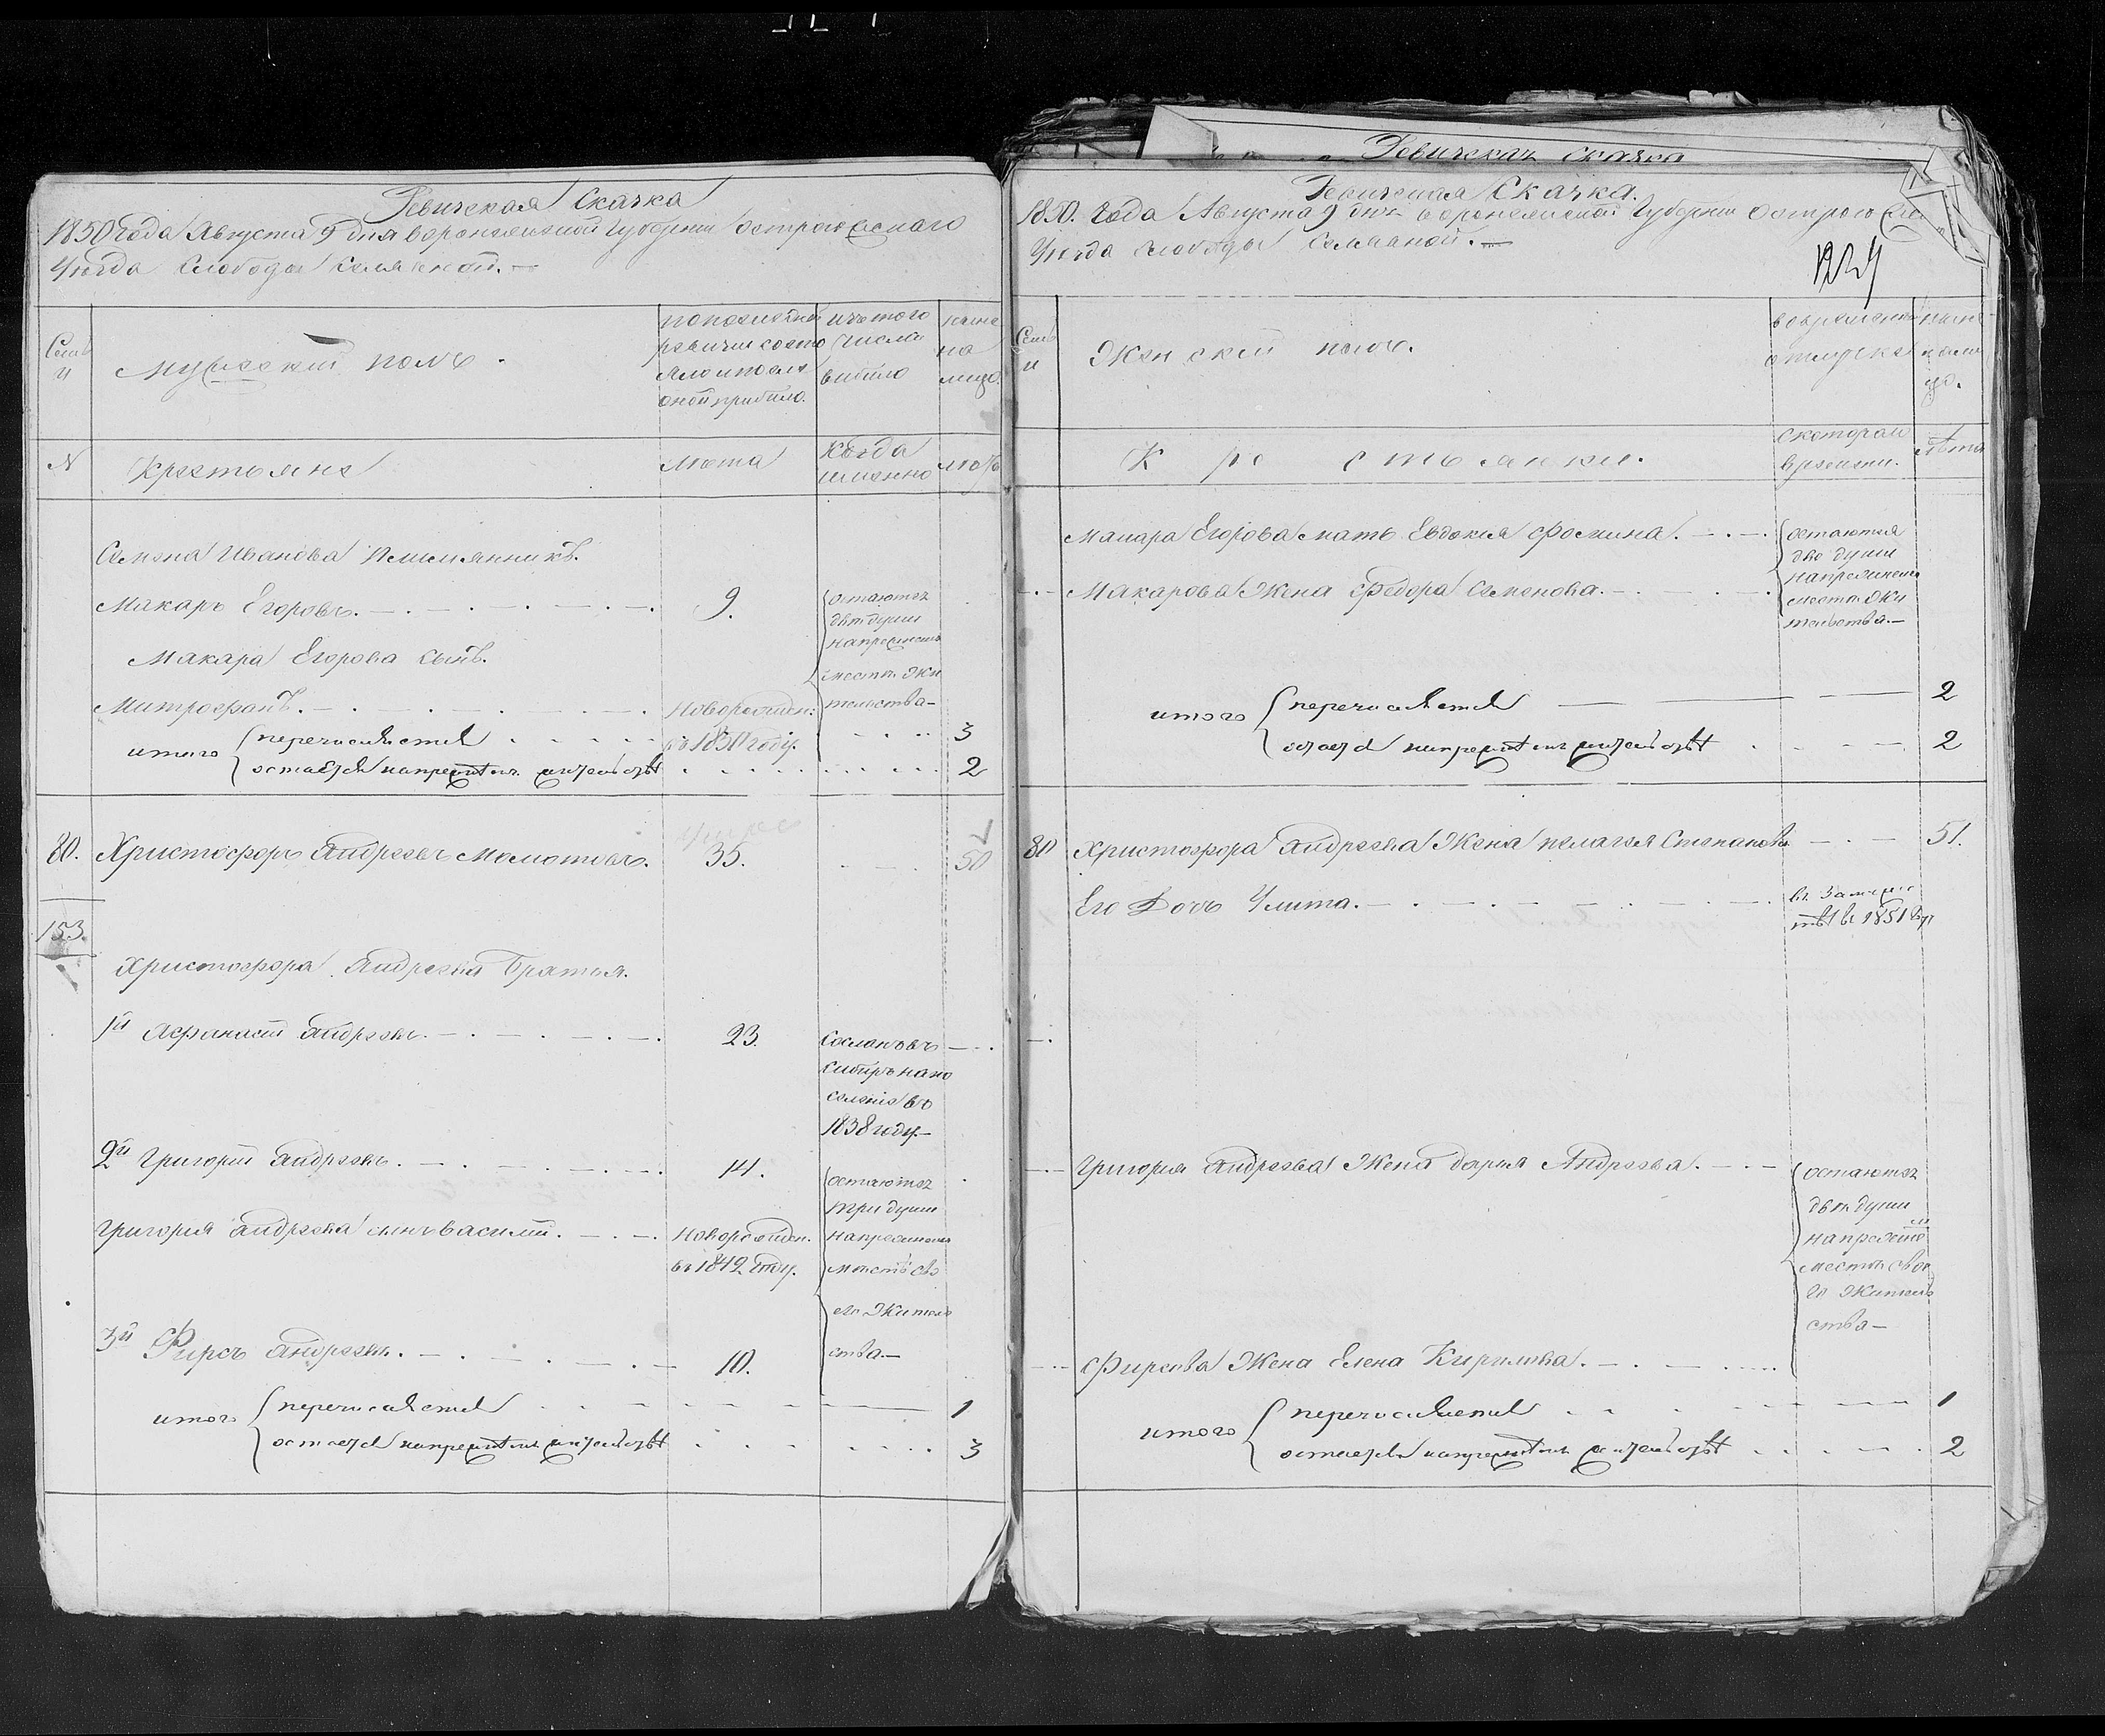 Ревизская Сказка
1850 года Августа 9 дня Воронежской Губернии Острогожскаго
Уезда Слободы
Семьи
Мужеский полъ.
по последней
ревизии состо
яло и после
оной прибыло.
изъ того
числа
выбыло
ныне
на
лицо.
N
Крестьяне
Лета
Когда
именно
Лета
Семена Иванова Племянникъ.
Макаръ Егоровъ.
9.
остаются
две души
на прежнемъ
месте жи
тельства
Макара Егорова Сынъ.
Митрофанъ.
Новорожден.
въ 1850 году.
итого
перечисляется
3
остается на прежнемъ жительстве
2
80. Христофоръ Андреевъ Момотовъ.
35.
50
153.
Христофора Андреева Братья.
1й Афанасий Андреевъ.
23.
Сосланъ въ
Сибирь на по
селение въ
1838 году.
2й Григорий Андреевъ.
14.
остаются
три души
на прежнемъ
месте сво
его Житель
ства
Григория Андреева сынъ Василий.
Новорожден.
въ 1842 году.
3й Фирсъ Андреевъ.
10.
итого
перечисляется
1
остается на прежнемъ жительстве
3
Ревизская сказка
Ревизская Сказка.
1850. Года Августа 9 дня Воронежской Губернии
Уезда Слободы
Семьи
Женский полъ.
во временной
отлучке
ныне
на ли
цо.
Крестьянки.
с котораго
времени.
Лета
Макара Егорова мать Евдокия Фомина.
остаются
две души
на прежнемъ
месте жи
тельства.
Макарова Жена Федора Семенова.
итого
перечисляется
2
остается на прежнемъ жительстве
2
80 Христофора Андреева Жена Пелагея Степанова
51.
Его Дочь Улита.
въ Замуже
стве въ 1851 году
Григория Андреева Жена Дарья Андреева.
остаются
две души
на прежнемъ
месте свое
го Житель
ства
Фирсова Жена Елена Кирилова.
итого
перечисляется
1
остается на прежнемъ жительстве
2